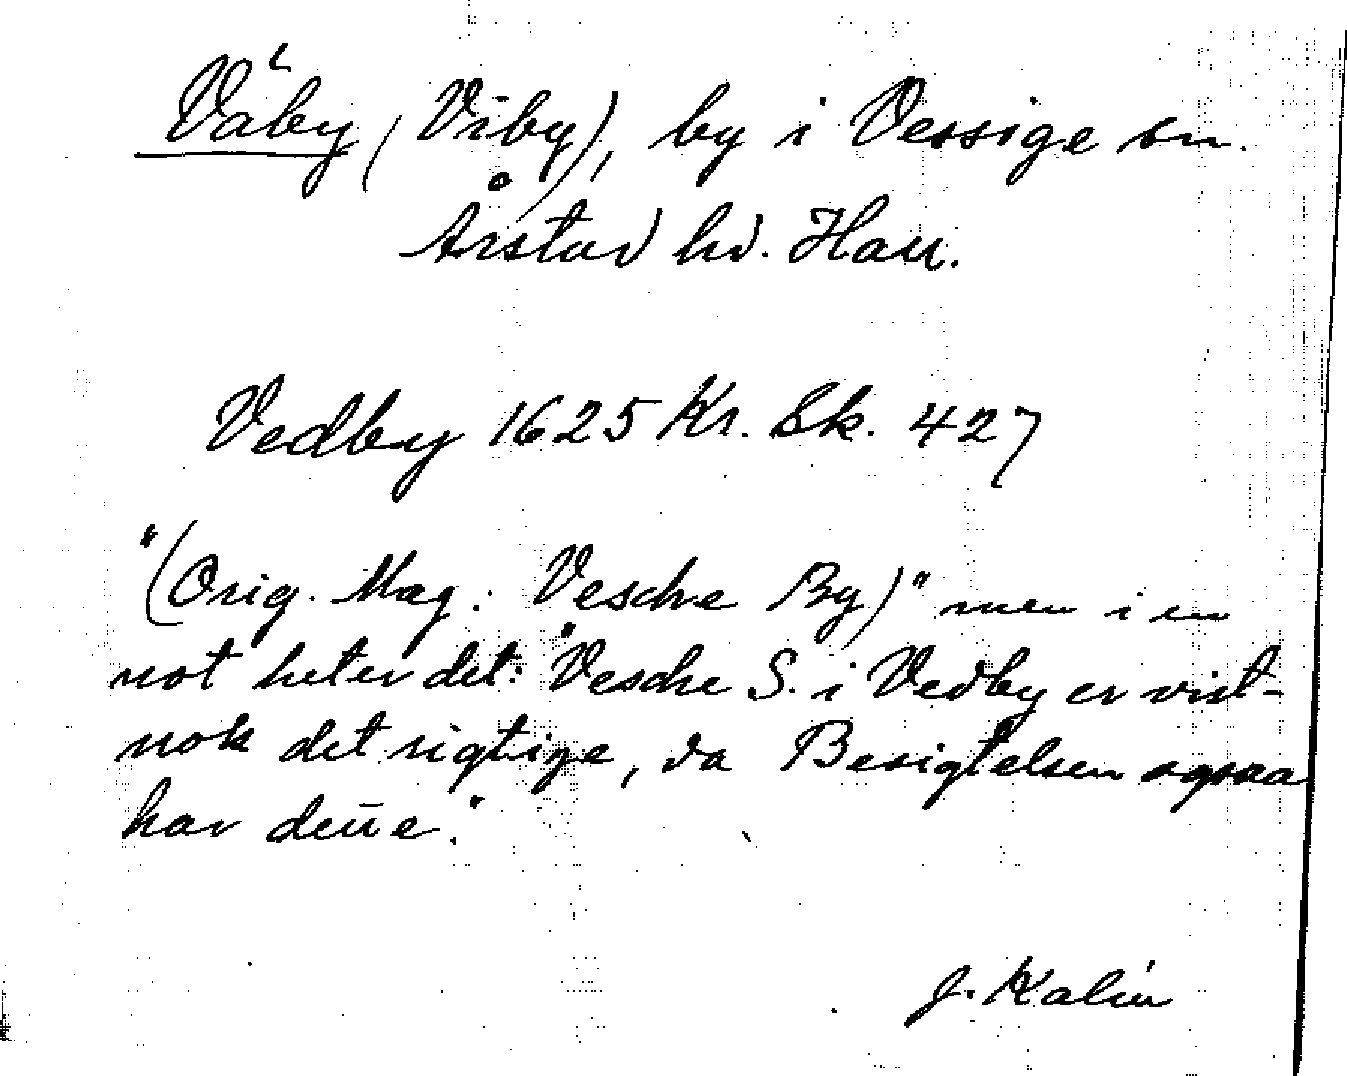 Våby (Viby), by i Vessige sn.
Årstad hd. Hall.
Vedby 1625 Kr. Sk. 427
"(Orig. Mag: Vesche By)" men i en
not heter det: "Vesche S. i Vedby er vist-
nok det rigtige, da Besigtelsen ogsaa
har deñe."
J. Kalin